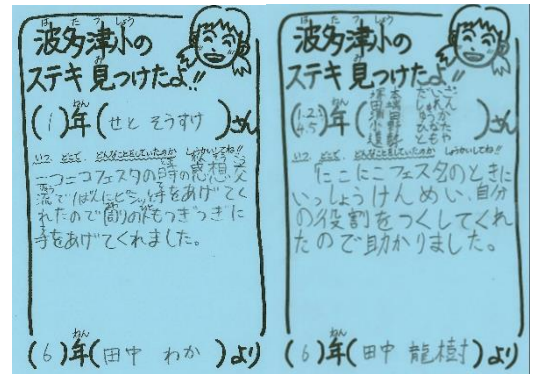 波多津小の
はたつしょう
ステキ見つけたよ!!
み
(1)年(せと そうすけ)さん
ねん
いつ、どこで、どんなことをしていたのか しょうかいしてね!!
ニコニコフェスタの時の感想交
流で1ばんにピシッと手をあげてく
れたので周りの人もつぎつぎに
手をあげてくれました。
(6)年(田中 わか)より
ねん
波多津小の
はたつしょう
ステキ見つけたよ!!
み
(1.2.3 4.5)年
ねん
いつ、どこで、どんなことをしていたのか しょうかいしてね!!
にこにこフェスタのときに
いっしょうけんめい、自分
の役割をつくしてくれ
たので助かりました。
(6)年(田中 龍樹)より
ねん